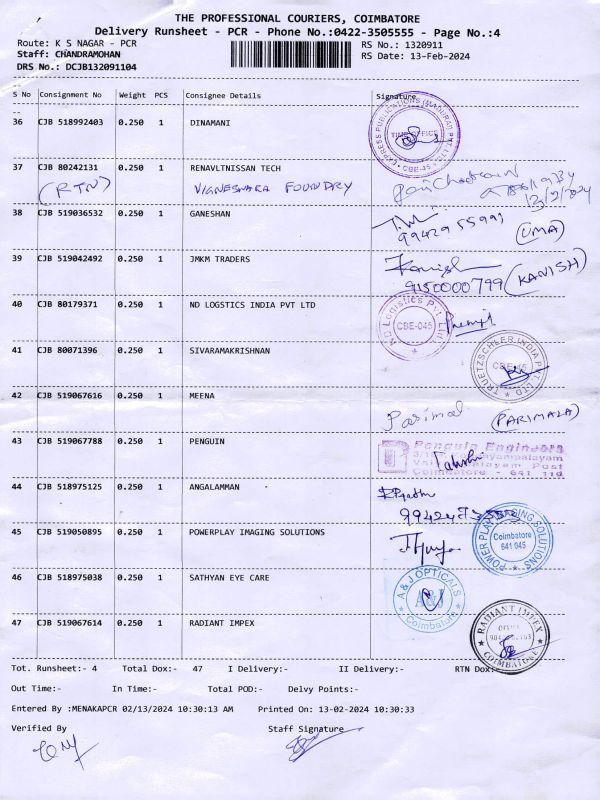 THE PROFESSIONAL COURIERS, COIMBATORE
Delivery Runsheet - PCR - Phone No.:0422-3505555 - Page No.:4
Route: K S NAGAR - PCR
RS No.: 1320911
Staff: CHANDRAMOHAN
RS Date: 13-Feb-2024
DRS No.: DCJB132091104
S No Consignment No Weight PCS Consignee Details Signature
36 CJB 518992403 0.250 1 DINAMANI
EXPRESS PUBLICATIONS (MADURAI) PVT. LTD. TIME OFFICE CBE-45
37 CJB 80242131 0.250 1 RENAVLTNISSAN TECH
(RTN) VIGNESHARA FOUNDRY
13/2/2024
38 CJB 519036532 0.250 1 GANESHAN
(UMA)
39 CJB 519042492 0.250 1 JMKM TRADERS
9150000799 (KANISH)
40 CJB 80179371 0.250 1 ND LOGSTICS INDIA PVT LTD
ND Logistics Pvt Ltd CBE-045
41 CJB 80071396 0.250 1 SIVARAMAKRISHNAN
TRUETZSCHLER INDIA PVT. LTD CBE-45
42 CJB 519067616 0.250 1 MEENA
Parimal (PARIMALA)
43 CJB 519067788 0.250 1 PENGUIN
Penguin Engineers
Post
Coimbatore - 641 110
44 CJB 518975125 0.250 1 ANGALAMMAN
45 CJB 519050895 0.250 1 POWERPLAY IMAGING SOLUTIONS
POWER PLAY IMAGING SOLUTIONS Coimbatore 641 045
46 CJB 518975038 0.250 1 SATHYAN EYE CARE
A & J OPTICALS A&J Coimbatore
47 CJB 519067614 0.250 1 RADIANT IMPEX
RADIANT IMPEX COIMBATORE
Tot. Runsheet:- 4 Total Dox:- 47 I Delivery:- II Delivery:- RTN Dox:-
Out Time:- In Time:- Total POD:- Delvy Points:-
Entered By :MENAKAPCR 02/13/2024 10:30:13 AM Printed On: 13-02-2024 10:30:33
Verified By Staff Signature